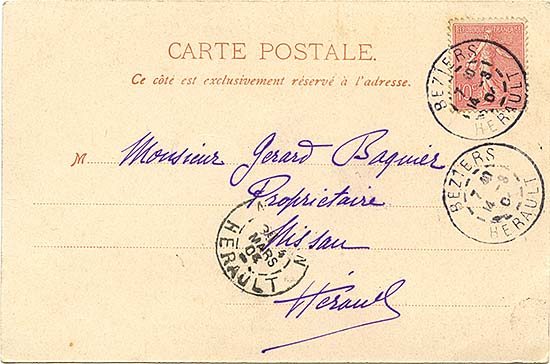 REPUBLIQUE FRANÇAISE
10c
BEZIERS
HERAULT
CARTE POSTALE.
Ce côté est exclusivement réservé à l'adresse.
M Monsieur Gerard Baquier
Propriétaire
Nissan
Hérault
BEZIERS
HERAULT
MARS
04
HERAULT